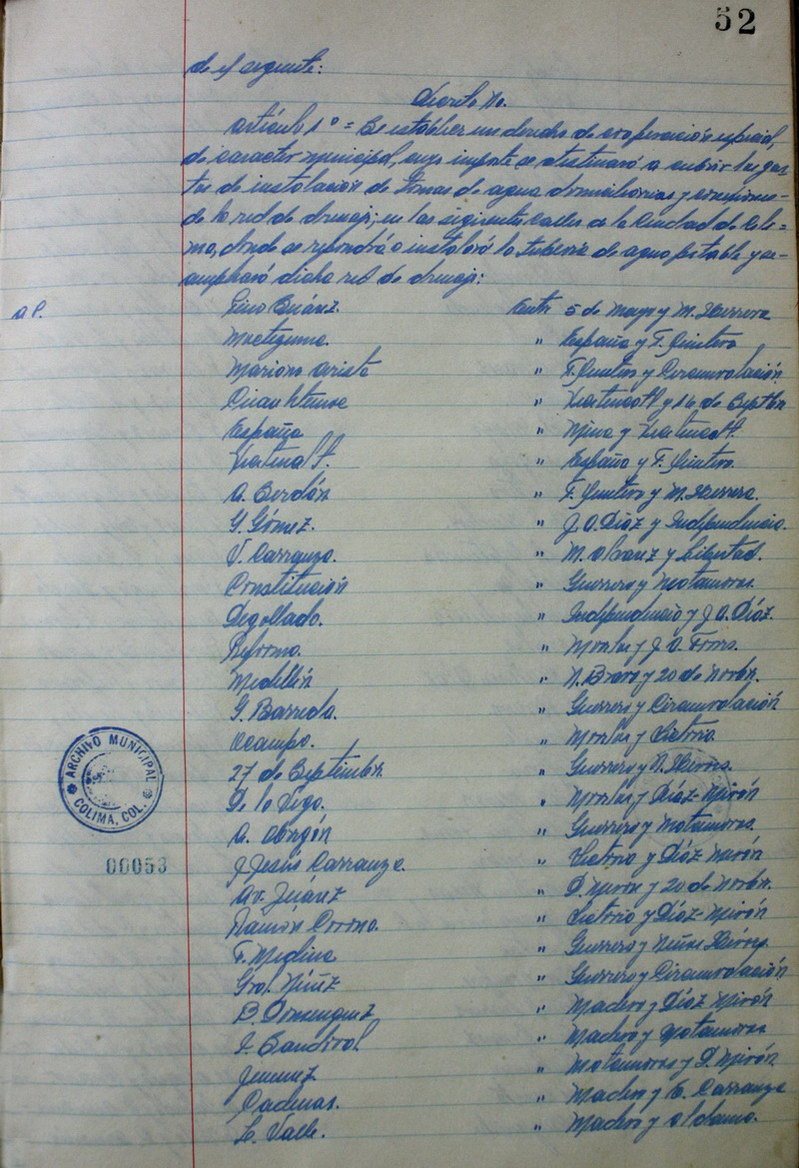 52
de el siguiente:
Decreto No.
Artículo 1º = Se establece un derecho de cooperación especial,
de caracter municipal, cuyo importe se destinará a cubrir los gas-
tos de instalación de tomas de agua domiciliarias y conexiones
de la red de drenaje; en las siguientes calles de la Ciudad de Coli=
ma, donde se repondrá o instalará la tubería de agua potable y se-
ampliará dicha red de drenaje:
a P.
Pino Suárez. Entre 5 de Mayo y M. Herrera
Moctezuma. " España y F. Quintero
Mariano Arista " F. Quintero y Circunvalación
Cuauhtemoc " y 16 de Septbre
España " Mina y
" España y F. Quintero.
A. Cerdán " F. Quintero y M. Herrera.
G. Gómez. " J. A. Díaz y Independencia.
V. Carranza. " M. Alvarez y Libertad.
Constitución " Guerrero y Matamoros.
Degollado. " Independencia y J. A. Díaz.
Reforma. " Morelos y J. A. Torres.
Medellín " N. Bravo y 20 de Novbre.
G. Barreda. " Guerrero y Circunvalación
Ocampo. " Morelos y Victoria
27 de Septiembre. " Guerrero y N. Héroes.
De la Vega. " Morelos y Díaz Mirón
A. Obregón " Guerrero y Matamoros.
J. Jesús Carranza. " Victoria y Díaz Mirón
Av. Juárez " D. Mirón y 20 de Novbre.
Ramón Corona. " Victoria y Díaz Mirón
F. Medina " Guerrero y Niños Héroes
Gral. Núñez " Guerrero y Circunvalación
B. Dominguez " Madero y Díaz Mirón
I. Sandoval " Madero y Matamoros
Jimenez " Matamoros y D. Mirón
Cadenas. " Madero y E. Carranza
L. Valle. " Madero y Aldama.
ARCHIVO MUNICIPAL
COLIMA, COL.
00053